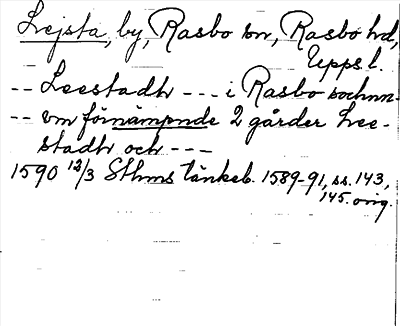 Lejsta, by, Rasbo sn, Rasbo hd,
Upps l.
-- Leestadh --- i Rasbo sochnn-
-- vm förnämpnde 2 gårder Lee-
stadh och ---
1590 12/3 Sthms tänkeb. 1589-91, ss. 143,
145. orig.